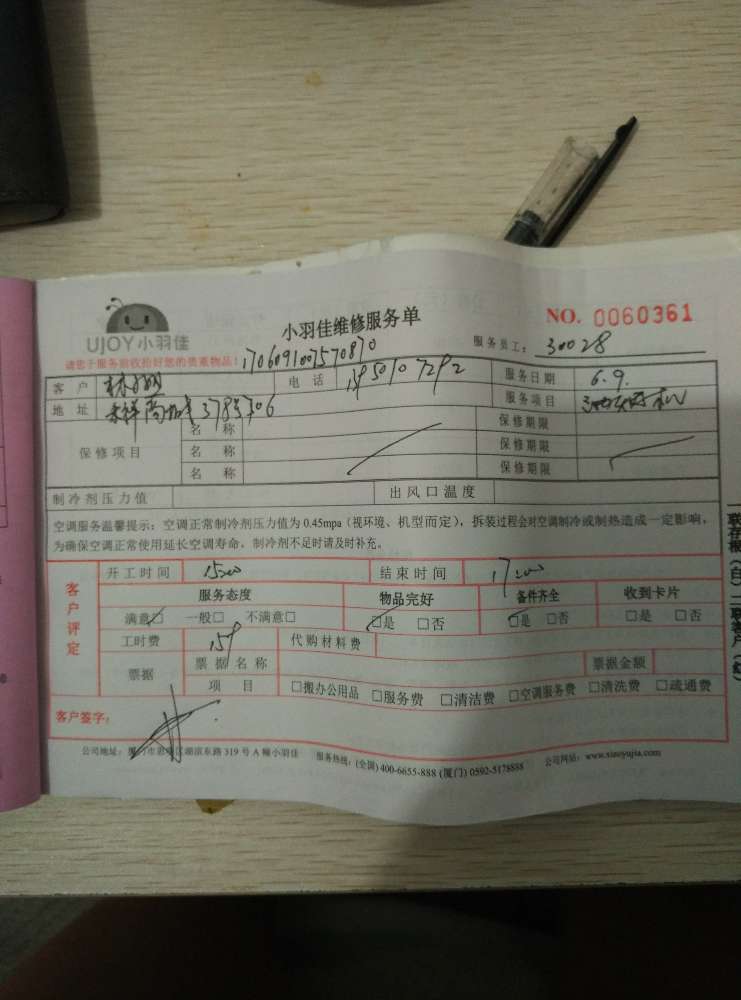 UJOY小羽佳
小羽佳维修服务单
NO. 0060361
请您于服务前收拾好您的贵重物品!
服务员工: 30028
客户 电话 服务日期 6.9.
地址 服务项目
保修项目 名称 保修期限
名称 保修期限
名称 保修期限
制冷剂压力值 出风口温度
空调服务温馨提示:空调正常制冷剂压力值为 0.45mpa(视环境、机型而定),拆装过程会对空调制冷或制热造成一定影响,
为确保空调正常使用延长空调寿命,制冷剂不足时请及时补充。
客户评定
开工时间 15:00 结束时间 17:00
服务态度 物品完好 备件齐全 收到卡片
满意□ 一般□ 不满意□ □是 □否 □是 □否 □是 □否
工时费 代购材料费
票据 票据名称 票据金额
项目 □搬办公用品 □服务费 □清洁费 □空调服务费 □清洗费 □疏通费
客户签字:
公司地址:厦门市思明区湖滨东路 319 号 A 幢小羽佳 服务热线:(全国)400-6655-888 (厦门) 0592-5178888 公司网站:www.xiaoyujia.com
联存根(白)二联客户(红)